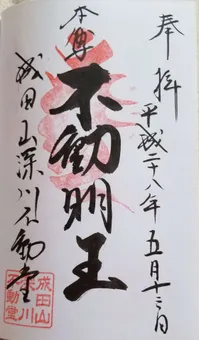 奉拝
平成二十八年五月十三日
本尊
不動明王
成田山深川不動堂
成田山
深川
不動堂